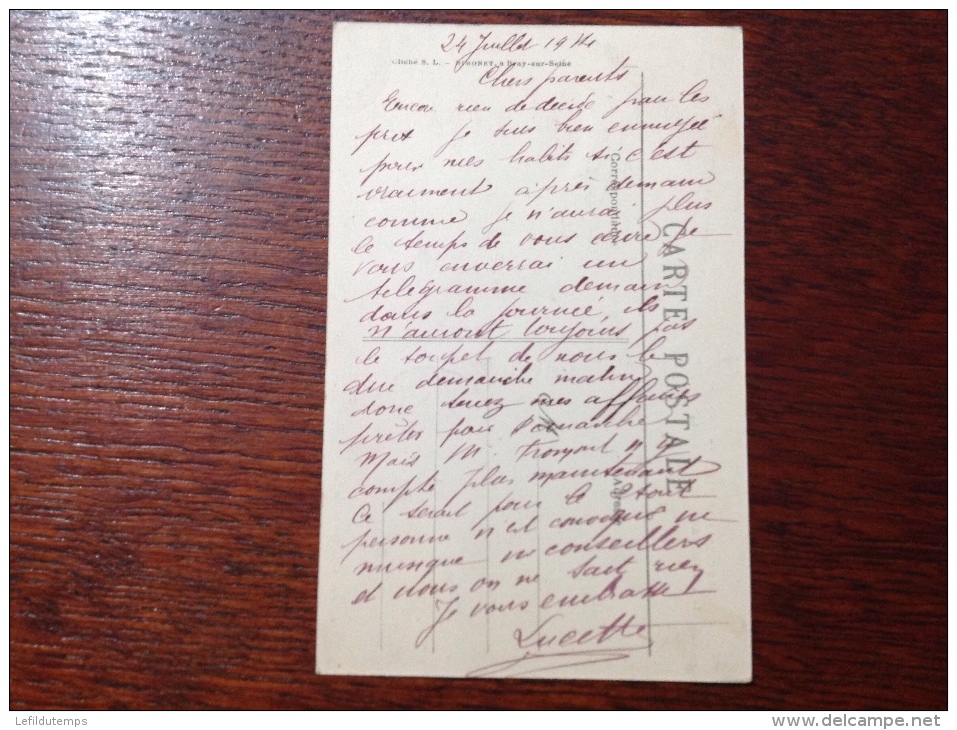 24 Juillet 1914
Cliché S. L. - SIMONET, à Bray-sur-Seine
Chers parents
Encore rien de décidé pour les
prix je suis bien ennuyée
pour mes habits si c'est
vraiment après demain
comme je n'aurai plus
le temps de vous écrire je
vous enverrai un
télégramme demain
dans la journée, ils
n'auront toujours pas
le toupet de nous le
dire demanche matin
donc tenez mes affaires
prêtes pour Dimanche
Mais M. Fromont n'y
compte plus maintenant
ce serait pour le août
personne n'est convoqué ne
musique ni conseillers
et nous on ne sait rien
Je vous embrasse
Lucette
CARTE POSTALE
Correspondance
Adresse
Lefildutemps
www.delcampe.net